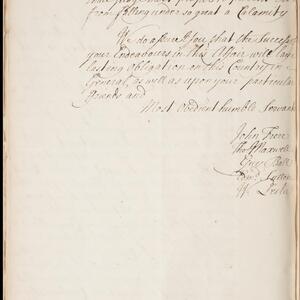 from falling under so great a Calamity
We assure You that the Success
your Endeavours in this Affair will lay
lasting Obligation on this Country in
General, as well as upon your particular
friends and
Most Obedient humble Servants
John Frere
Tho: Maxwell
Guy Ball
Edwd. Lytton
W.